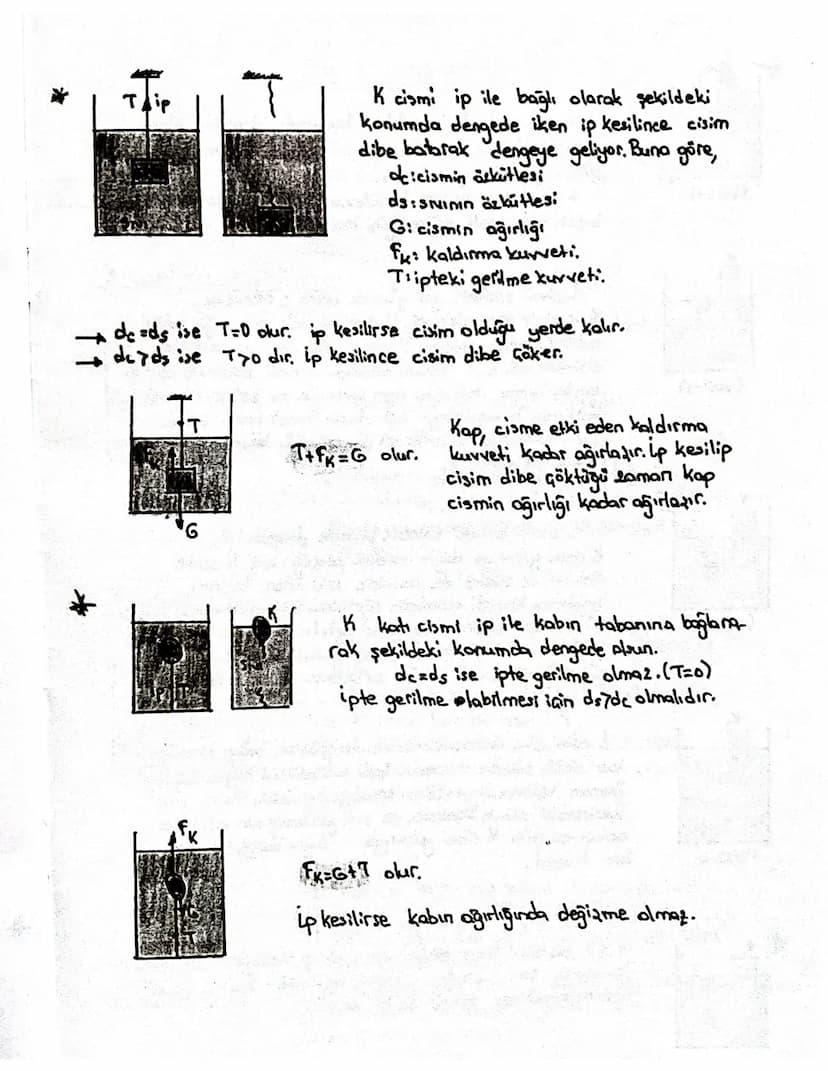 * T ip
K cismi ip ile bağlı olarak şekildeki
konumda dengede iken ip kesilince cisim
dibe batarak dengeye geliyor. Buna göre,
dc: cismin özkütlesi
ds: sıvının özkütlesi
G: cismin ağırlığı
Fk: kaldırma kuvveti.
T: ipteki gerilme kuvveti.
→ dc=ds ise T=0 olur. ip kesilirse cisim olduğu yerde kalır.
→ dc>ds ise T>0 dır. İp kesilince cisim dibe çöker.
T
G
T+FK=G olur.
Kap, cisme etki eden kaldırma
kuvveti kadar ağırlaşır. İp kesilip
cisim dibe çöktüğü zaman kap
cismin ağırlığı kadar ağırlaşır.
*
K
K katı cismi ip ile kabın tabanına bağlana-
rak şekildeki konumda dengede olsun.
dc=ds ise ipte gerilme olmaz. (T=0)
ipte gerilme olabilmesi için ds>dc olmalıdır.
FK
FK=G+T olur.
İp kesilirse kabın ağırlığında değişme olmaz.